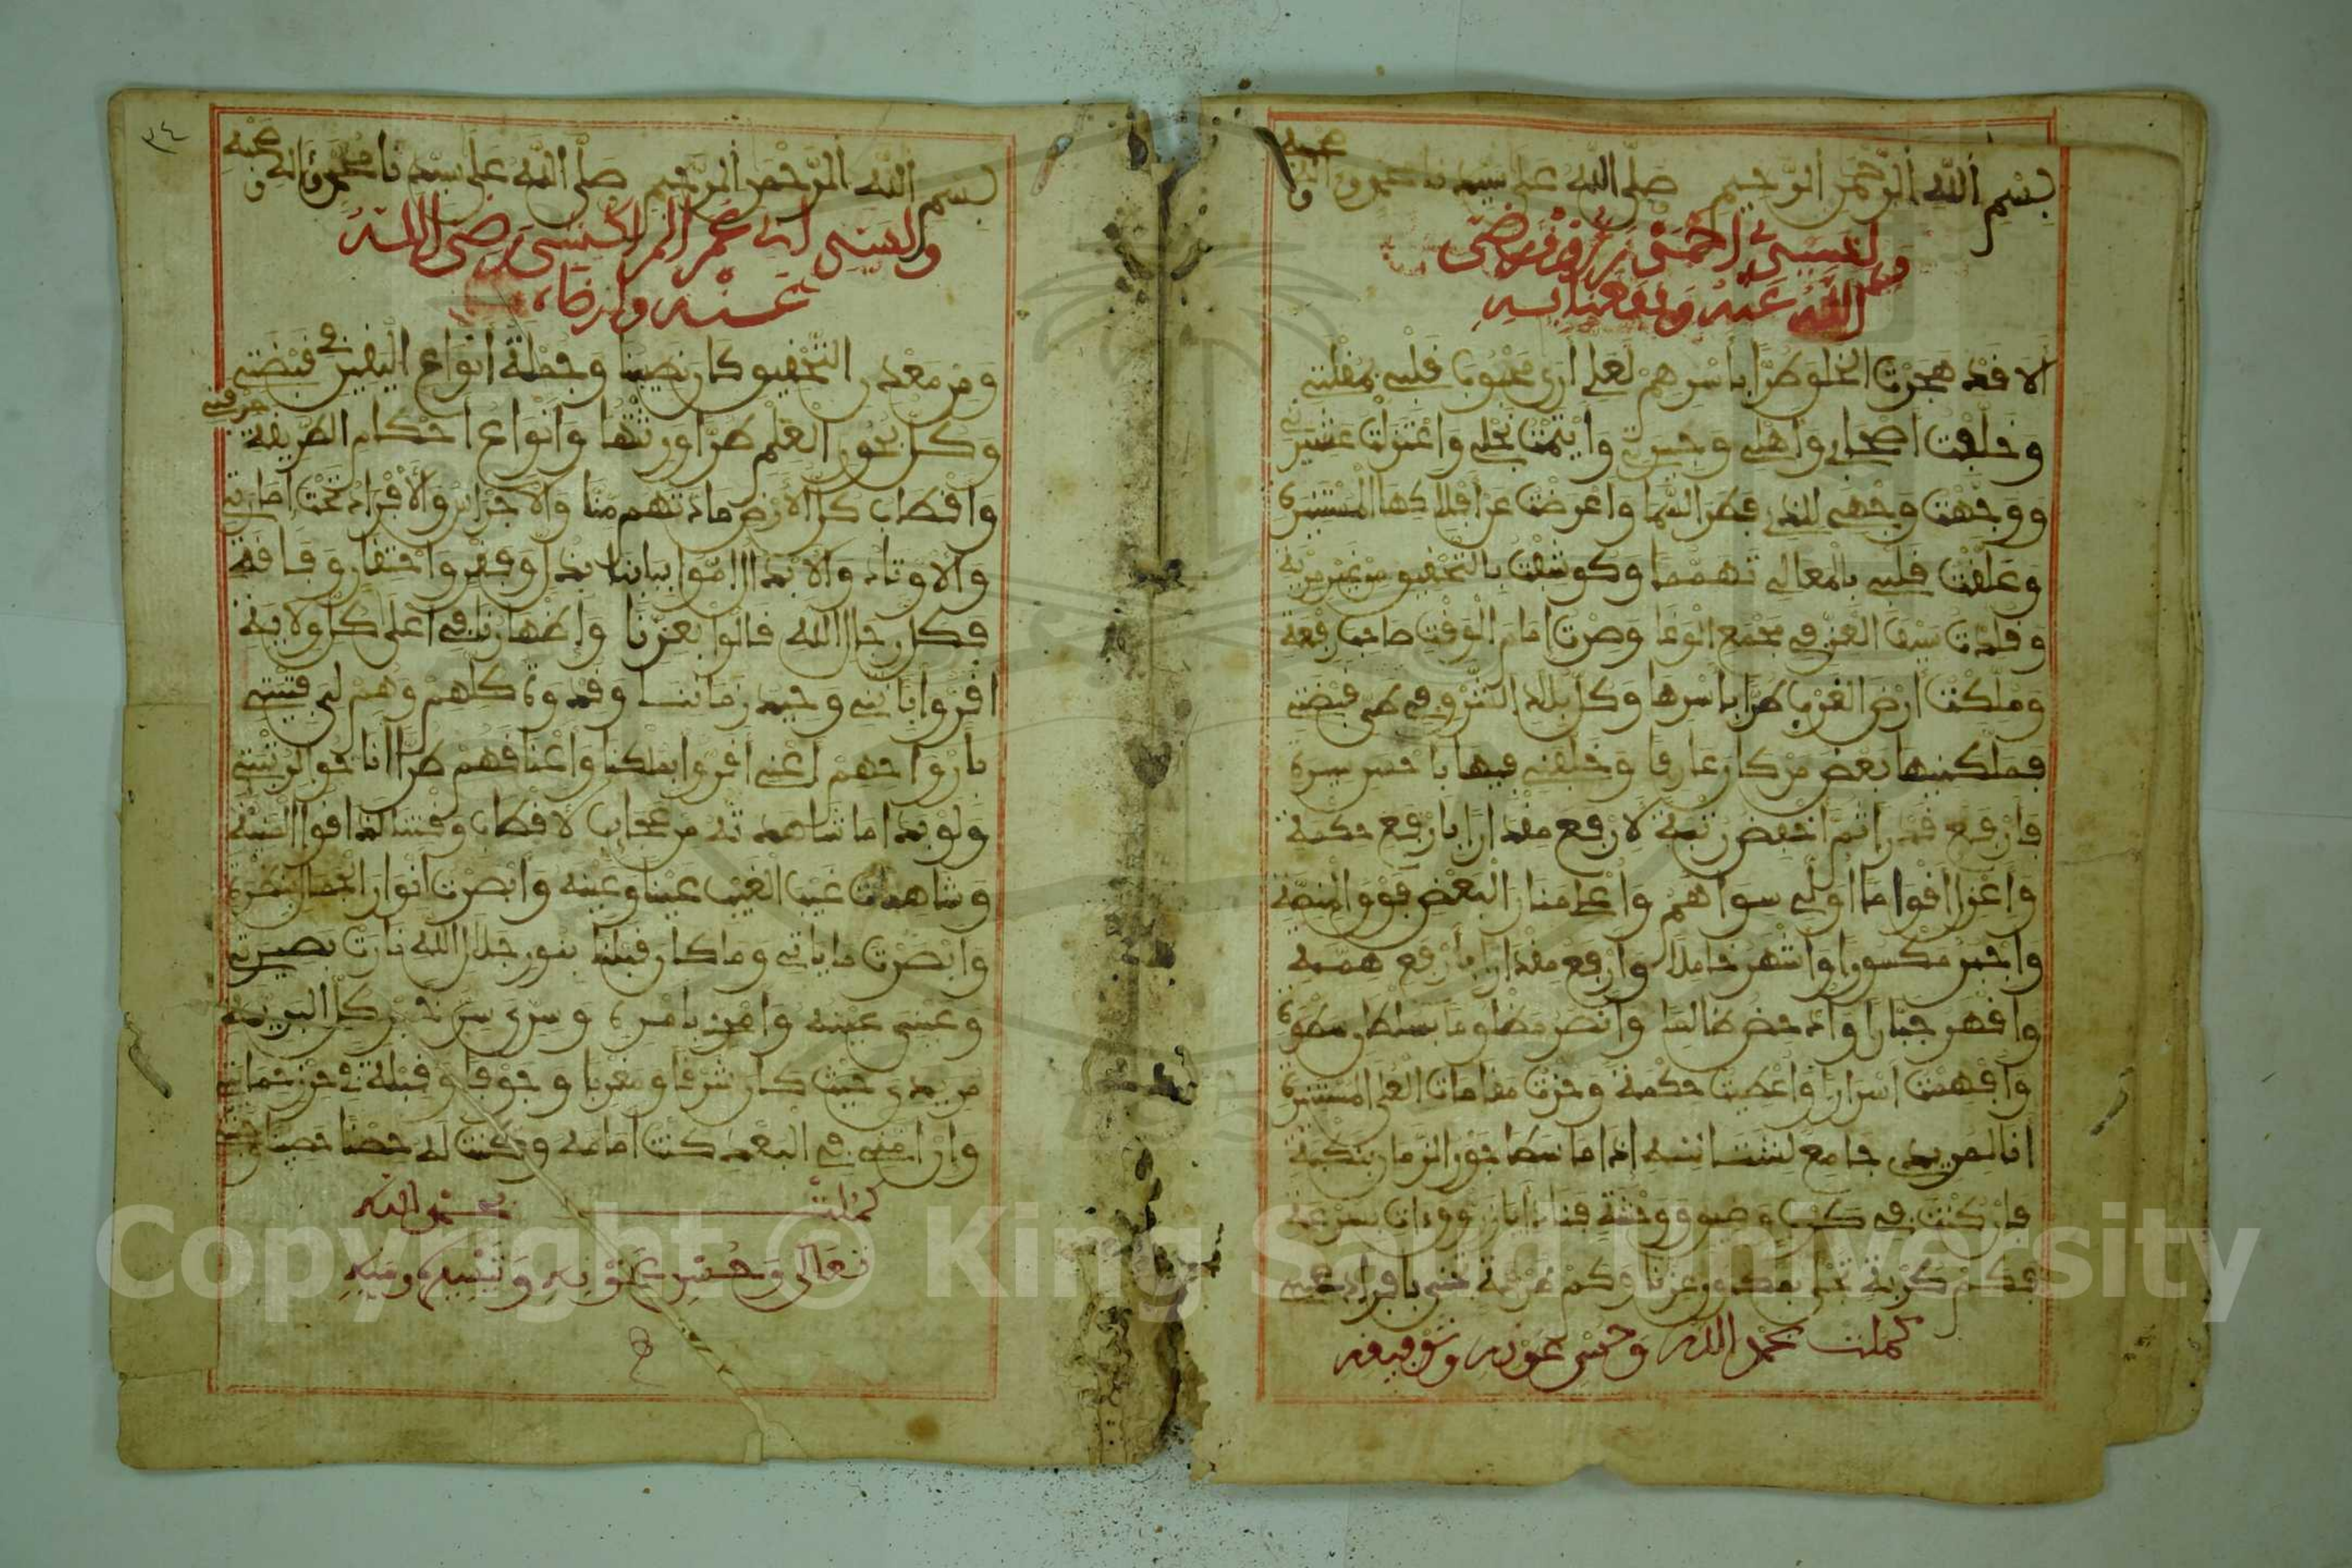 بسم الله الرحمن الرحيم صلى الله على سيدنا محمد وءاله وصحبه
ولسيدي احمد زروق رضي
الله عنه ونفعنا به
ألا قد هجرت الخلق طرا بأسرهم لعلي أرى محبوب قلبي بمقلتي
وخلفت اصحابي واهلي وجيرتي وايتمت نجلي واعتزلت عشيرتي
ووجهت وجهي للذي فطر السما واعرضت عن افلاكها المستنيرة
وعلقت قلبي بالمعالي تهمما وكوشفت بالتحقيق من غير مرية
وقلدت سيف العز في مجمع الوغا وصرت امام الوقت صاحب رفعة
وملكت أرض الغرب طرا باسرها وكل بلاد الشرق في طي قبضتي
فملكنيها بعض من كان عارفا وخلفني فيها باحسن سيرة
فأرفع قدرا ثم اخفض رتبة لارفع مقدارا بارفع حكمة
واعزل اقواما اولي سواهم واعلي منار البعض فوق المنصة
واجبر مكسورا واشهر خاملا وارفع مقدارا بأرفع همة
واقهر جبارا وادحض ظالما وانصر مظلوما بسلطان سطوة
وافهمت اسرارا واعطيت حكمة وحزت مقامات العلى المستنيرة
انا لمريدي جامع لشتاته اذا ما سطا جور الزمان بنكبة
فان كنت في كرب وضيق ووحشة فناد ايا زروق ءات بسرعة
فكم كربة تجلى بمكنون عزنا وكم غربة تجنى بافراد
كملت بحمد الله وحسن عونه وتوفيقه
بسم الله الرحمن الرحيم صلى الله على سيدنا محمد وءاله وصحبه
ولسيدي ابي عمر المراكشي رضي الله
عنه وارضاه
ومن معدن التحقيق كان نصيبنا وجملة أنواع اليقين في قبضتي
وكل بحور العلم طرا ورثتها وانواع احكام الطريقة حرفتي
واقطاب كل الارض مادتهم منا والاجراس والافراد تحت امارتي
والاوتاد والابدال اموا ببابنا بذل وفقر واحتقار وفاقة
فكل رجال الله قالوا بعزنا وإظهارنا في اعلى كل ولاية
اقروا باني وحيد زماننا وقدوة كلهم وهم لي فتيتي
بارواحهم اعني اقروا بملكنا واعناقهم طرا انا حولي
ولو بدا ما شاهدته من عجايب لاقطاب وقتنا لذاقوا المنية
وشاهدت غيب الغيب عينا وعينه وابصرت انوار الجمال
وابصرت ما ياتي وما كان قبلنا بنور جلال الله نارت بصيرتي
وعيني عينه وامره بامري وسري سر كل البرية
مريدي حيث كان شرقا ومغربا وجوفا وقبلة في حرز حمايتي
وان امني في البعد كنت امامه وكنت له حصنا حصينا
كملت بحمد الله
تعالى وحسن عونه ومنه
٣٤
Copyright © King Saud University